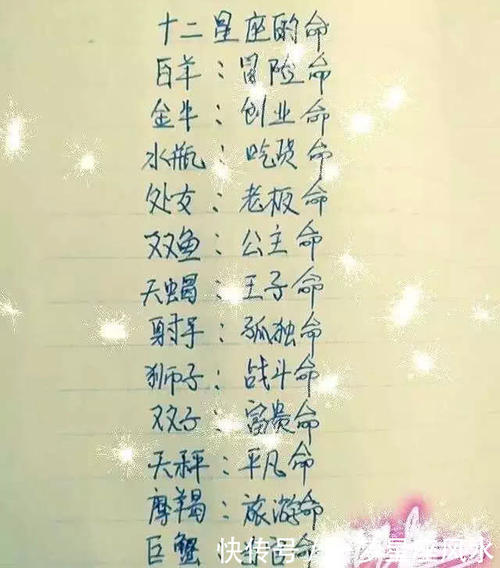 十二星座的命
白羊：冒险命
金牛：创业命
水瓶：吃货命
处女：老板命
双鱼：公主命
天蝎：王子命
射手：孤独命
狮子：战斗命
双子：富贵命
天秤：平凡命
摩羯：旅游命
巨蟹 命
快传号 星座风水